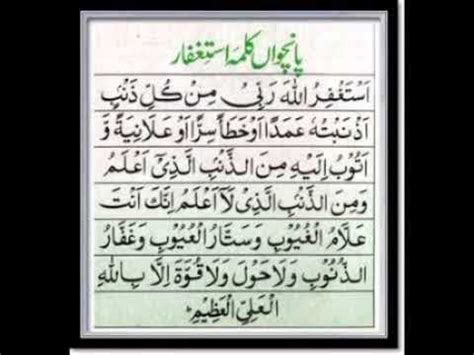 پانچواں کلمہ استغفار
اَسْتَغْفِرُ اللهَ رَبِّیْ مِنْ كُلِّ ذَنْۢبٍ
اَذْنَبْتُهٗ عَمَدًا اَوْ خَطَأً سِرًّا اَوْ عَلَانِيَةً وَّ
اَتُوْبُ اِلَيْهِ مِنَ الذَّنْۢبِ الَّذِیْٓ اَعْلَمُ
وَمِنَ الذَّنْۢبِ الَّذِیْ لَآ اَعْلَمُ اِنَّكَ اَنْتَ
عَلَّامُ الْغُيُوْبِ وَسَتَّارُ الْعُيُوْبِ وَغَفَّارُ
الذُّنُوْبِ وَلَا حَوْلَ وَلَا قُوَّةَ اِلَّا بِاللهِ
الْعَلِیِّ الْعَظِيْمِ ؕ